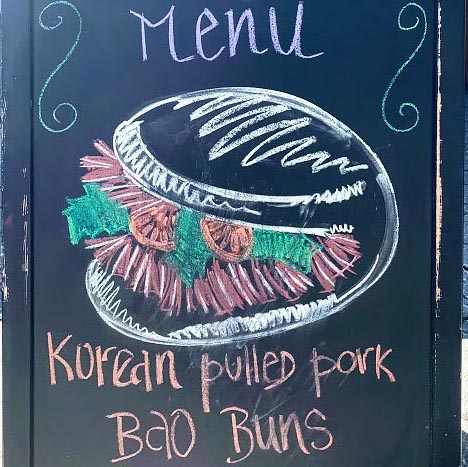 Menu
Korean pulled pork
Bao Buns